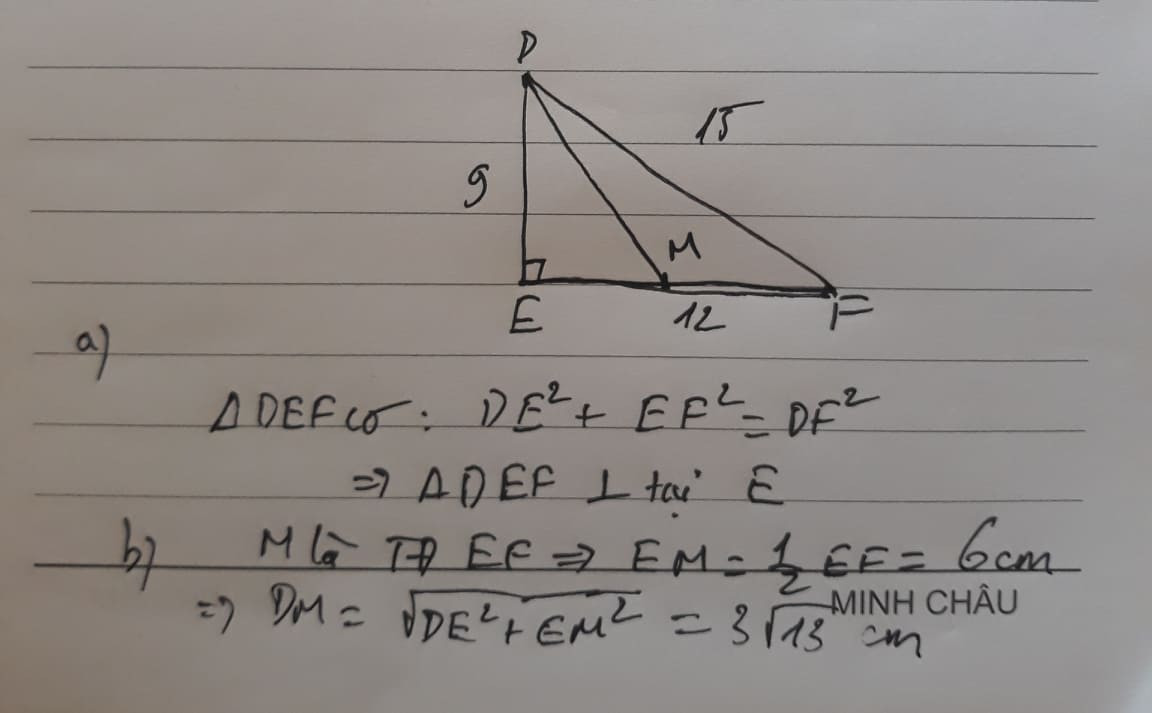 D
15
9
M
E
12
F
a)
Δ DEF có : DE² + EF² = DF²
=> Δ DEF ⊥ tại E
b) M là TĐ EF => EM = 1/2 EF = 6cm
=> DM = √(DE² + EM²) = 3√13 cm
MINH CHÂU